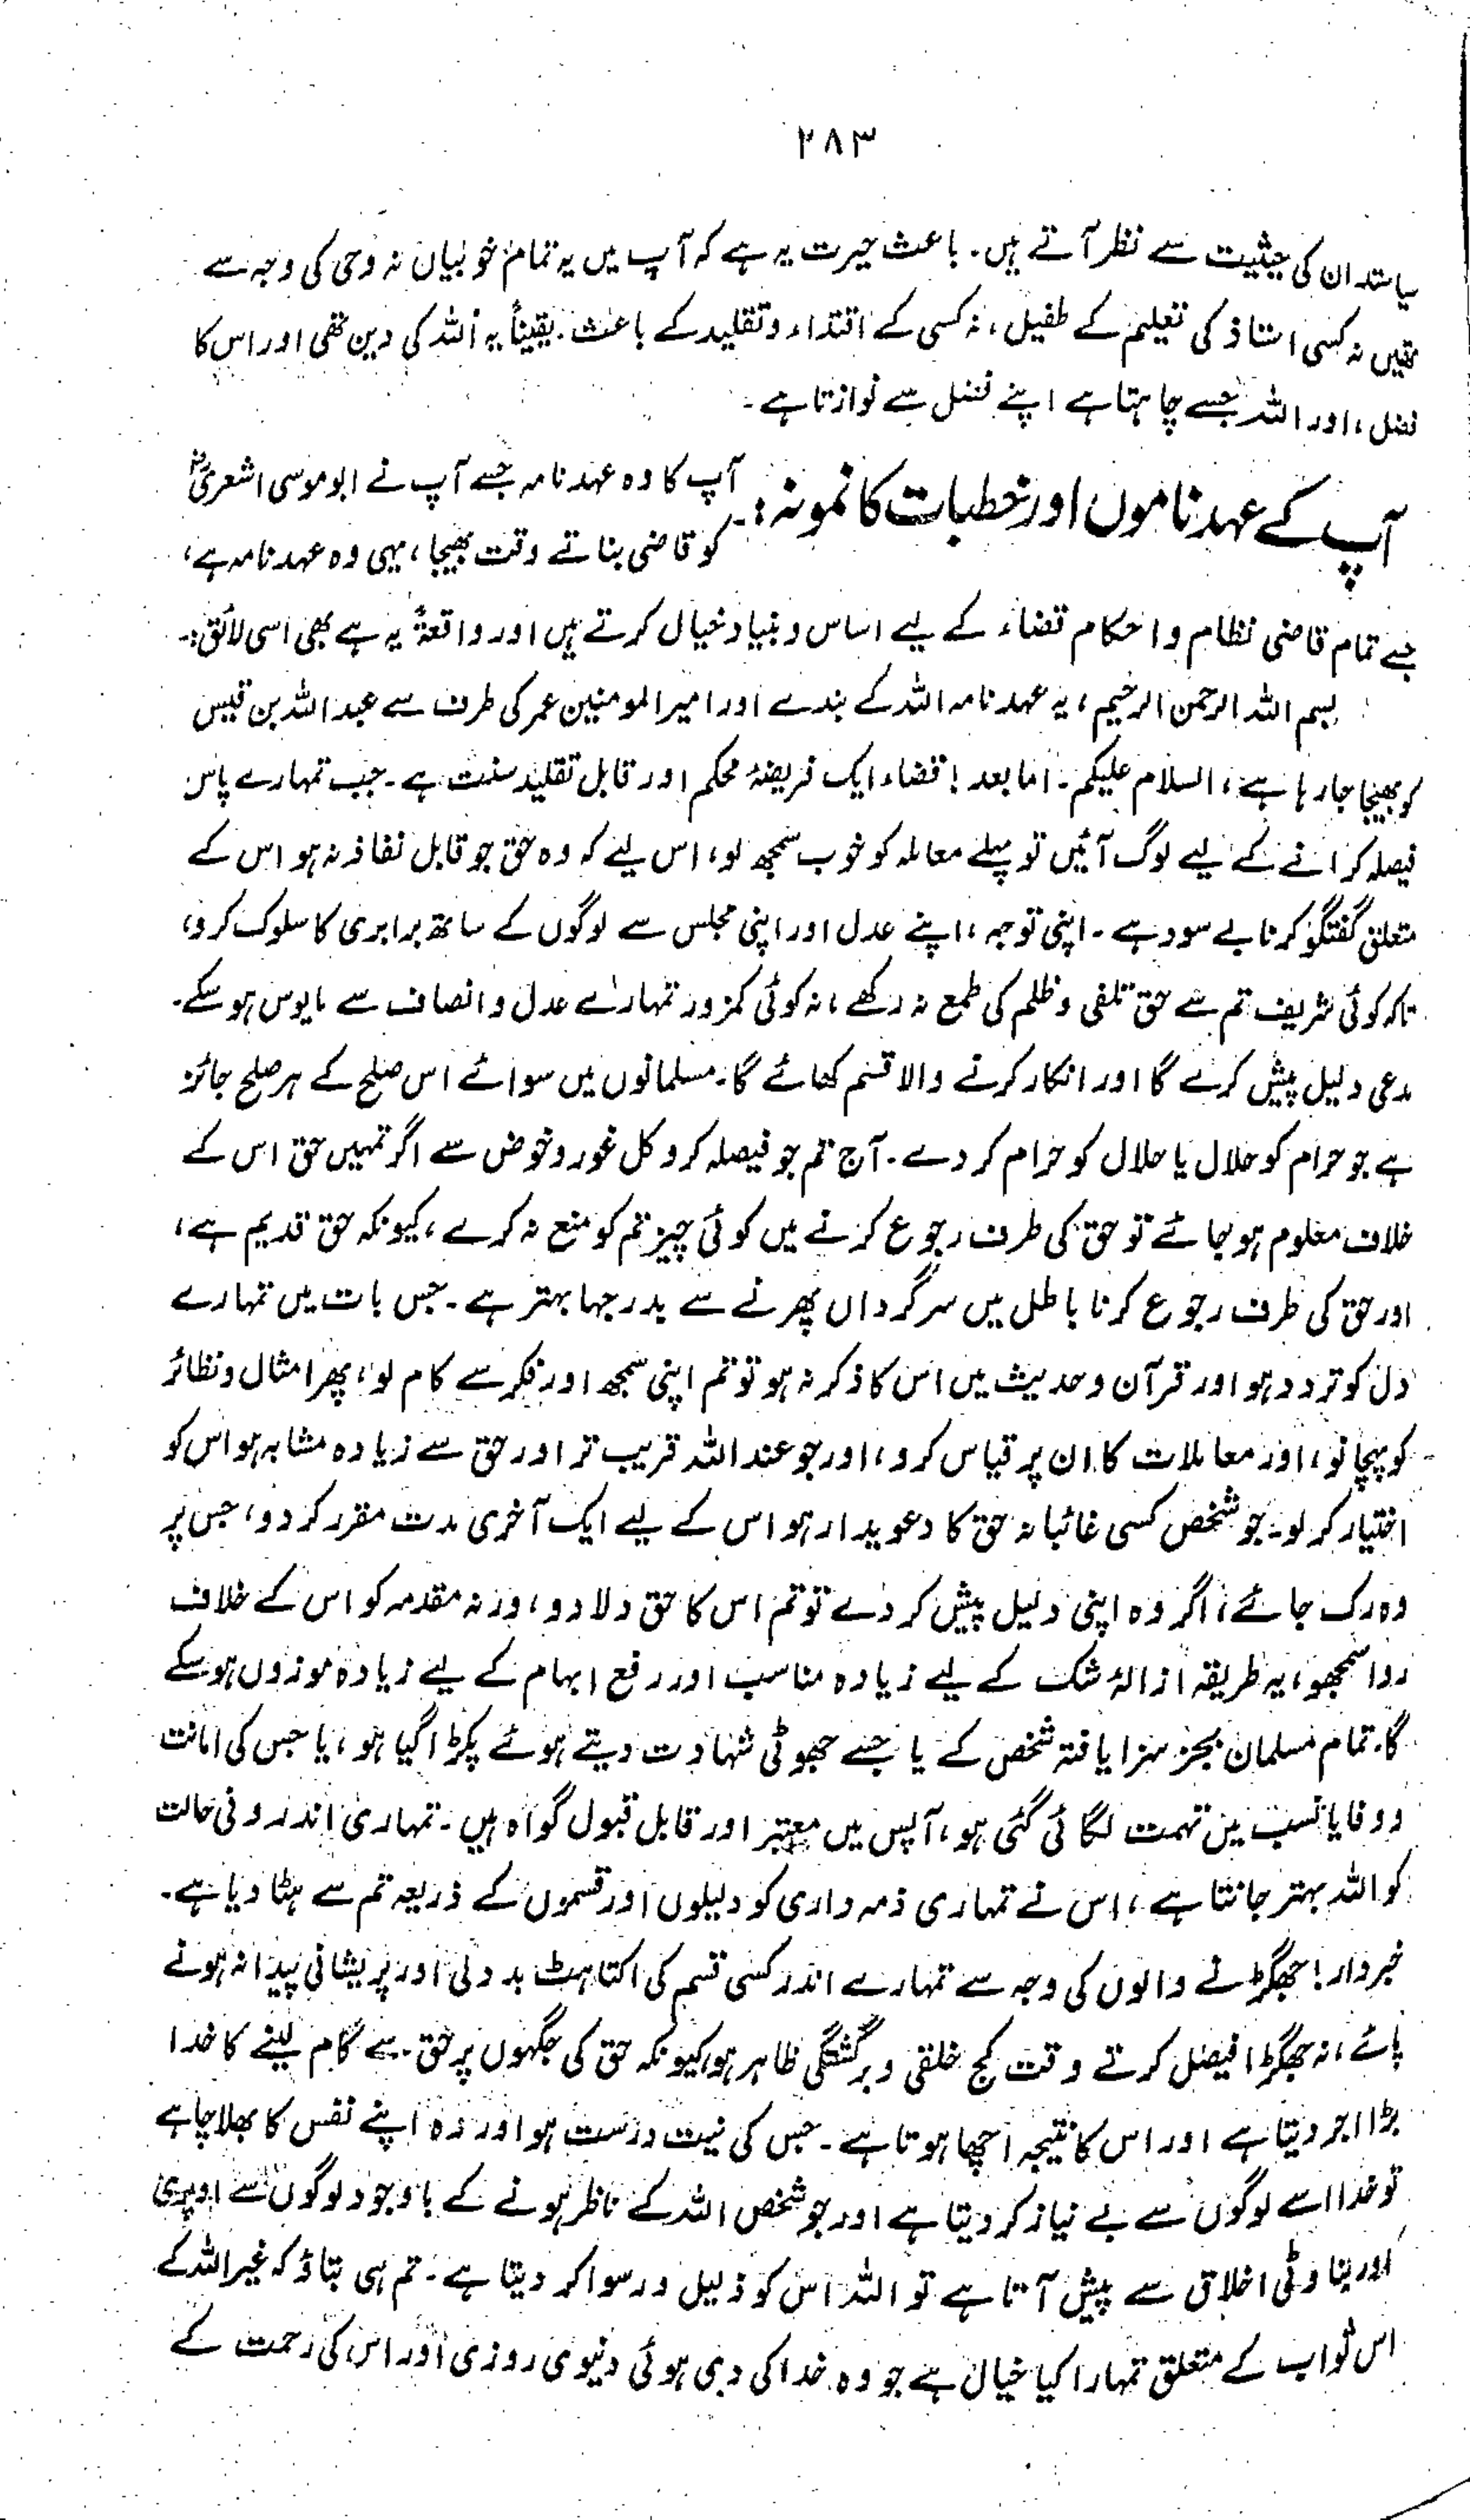 ۲۸۳
سیاستدان کی حیثیت سے نظر آتے ہیں۔ باعث حیرت یہ ہے کہ آپ میں یہ تمام خوبیاں نہ وحی کی وجہ سے
تھیں نہ کسی استاذ کی تعلیم کے طفیل، نہ کسی کے اقتداء و تقلید کے باعث۔ یقیناً یہ اللہ کی دین تھی اور اس کا
فضل، اور اللہ جسے چاہتا ہے اپنے فضل سے نوازتا ہے۔
آپ کے عہد ناموں اور خطبات کا نمونہ:۔ آپ کا وہ عہد نامہ جسے آپ نے ابو موسی اشعریؓ
کو قاضی بناتے وقت بھیجا، یہی وہ عہد نامہ ہے،
جسے تمام قاضی نظام و احکام قضاء کے لیے اساس و بنیاد خیال کرتے ہیں اور واقعۃً یہ ہے بھی اسی لائق:۔
بسم اللہ الرحمن الرحیم، یہ عہد نامہ اللہ کے بندے اور امیر المومنین عمر کی طرف سے عبد اللہ بن قیس
کو بھیجا جا رہا ہے، السلام علیکم۔ اما بعد! قضاء ایک فریضۂ محکم اور قابل تقلید سنت ہے۔ جب تمہارے پاس
فیصلہ کرانے کے لیے لوگ آئیں تو پہلے معاملہ کو خوب سمجھ لو، اس لیے کہ وہ حق جو قابل نفاذ نہ ہو اس کے
متعلق گفتگو کرنا بے سود ہے۔ اپنی توجہ، اپنے عدل اور اپنی مجلس سے لوگوں کے ساتھ برابری کا سلوک کرو،
تاکہ کوئی شریف تم سے حق تلفی و ظلم کی طمع نہ رکھے، نہ کوئی کمزور تمہارے عدل و انصاف سے مایوس ہو سکے۔
مدعی دلیل پیش کرے گا اور انکار کرنے والا قسم کھائے گا۔ مسلمانوں میں سوائے اس صلح کے ہر صلح جائز
ہے جو حرام کو حلال یا حلال کو حرام کر دے۔ آج تم جو فیصلہ کرو کل غور و خوض سے اگر تمہیں حق اس کے
خلاف معلوم ہو جائے تو حق کی طرف رجوع کرنے میں کوئی چیز تم کو منع نہ کرے، کیونکہ حق قدیم ہے،
اور حق کی طرف رجوع کرنا باطل میں سرگرداں پھرنے سے بدرجہا بہتر ہے۔ جس بات میں تمہارے
دل کو تردد ہو اور قرآن و حدیث میں اس کا ذکر نہ ہو تو تم اپنی سمجھ اور فکر سے کام لو، پھر امثال و نظائر
کو پہچانو، اور معاملات کا ان پر قیاس کرو، اور جو عند اللہ قریب تر اور حق سے زیادہ مشابہ ہو اس کو
اختیار کر لو۔ جو شخص کسی غائبانہ حق کا دعویدار ہو اس کے لیے ایک آخری مدت مقرر کر دو، جس پر
وہ رک جائے، اگر وہ اپنی دلیل پیش کر دے تو تم اس کا حق دلا دو، ورنہ مقدمہ کو اس کے خلاف
روا سمجھو، یہ طریقہ ازالۂ شک کے لیے زیادہ مناسب اور رفع ابہام کے لیے زیادہ موزوں ہو سکے
گا۔ تمام مسلمان بجز سزا یافتہ شخص کے یا جسے جھوٹی شہادت دیتے ہوئے پکڑا گیا ہو، یا جس کی امانت
و وفا یا نسب میں تہمت لگائی گئی ہو، آپس میں معتبر اور قابل قبول گواہ ہیں۔ تمہاری اندرونی حالت
کو اللہ بہتر جانتا ہے، اس نے تمہاری ذمہ داری کو دلیلوں اور قسموں کے ذریعہ تم سے ہٹا دیا ہے۔
خبردار! جھگڑنے والوں کی وجہ سے تمہارے اندر کسی قسم کی اکتاہٹ بد دلی اور پریشانی پیدا نہ ہونے
پائے، نہ جھگڑا فیصل کرتے وقت کج خلقی و برگشتگی ظاہر ہو، کیونکہ حق کی جگہوں پر حق سے کام لینے کا خدا
بڑا اجر دیتا ہے اور اس کا نتیجہ اچھا ہوتا ہے۔ جس کی نیت درست ہو اور وہ اپنے نفس کا بھلا چاہے
تو خدا اسے لوگوں سے بے نیاز کر دیتا ہے اور جو شخص اللہ کے ناظر ہونے کے باوجود لوگوں سے اوپری
اور بناوٹی اخلاق سے پیش آتا ہے تو اللہ اس کو ذلیل و رسوا کر دیتا ہے۔ تم ہی بتاؤ کہ غیر اللہ کے
اس ثواب کے متعلق تمہارا کیا خیال ہے جو وہ خدا کی دی ہوئی دنیوی روزی اور اس کی رحمت کے